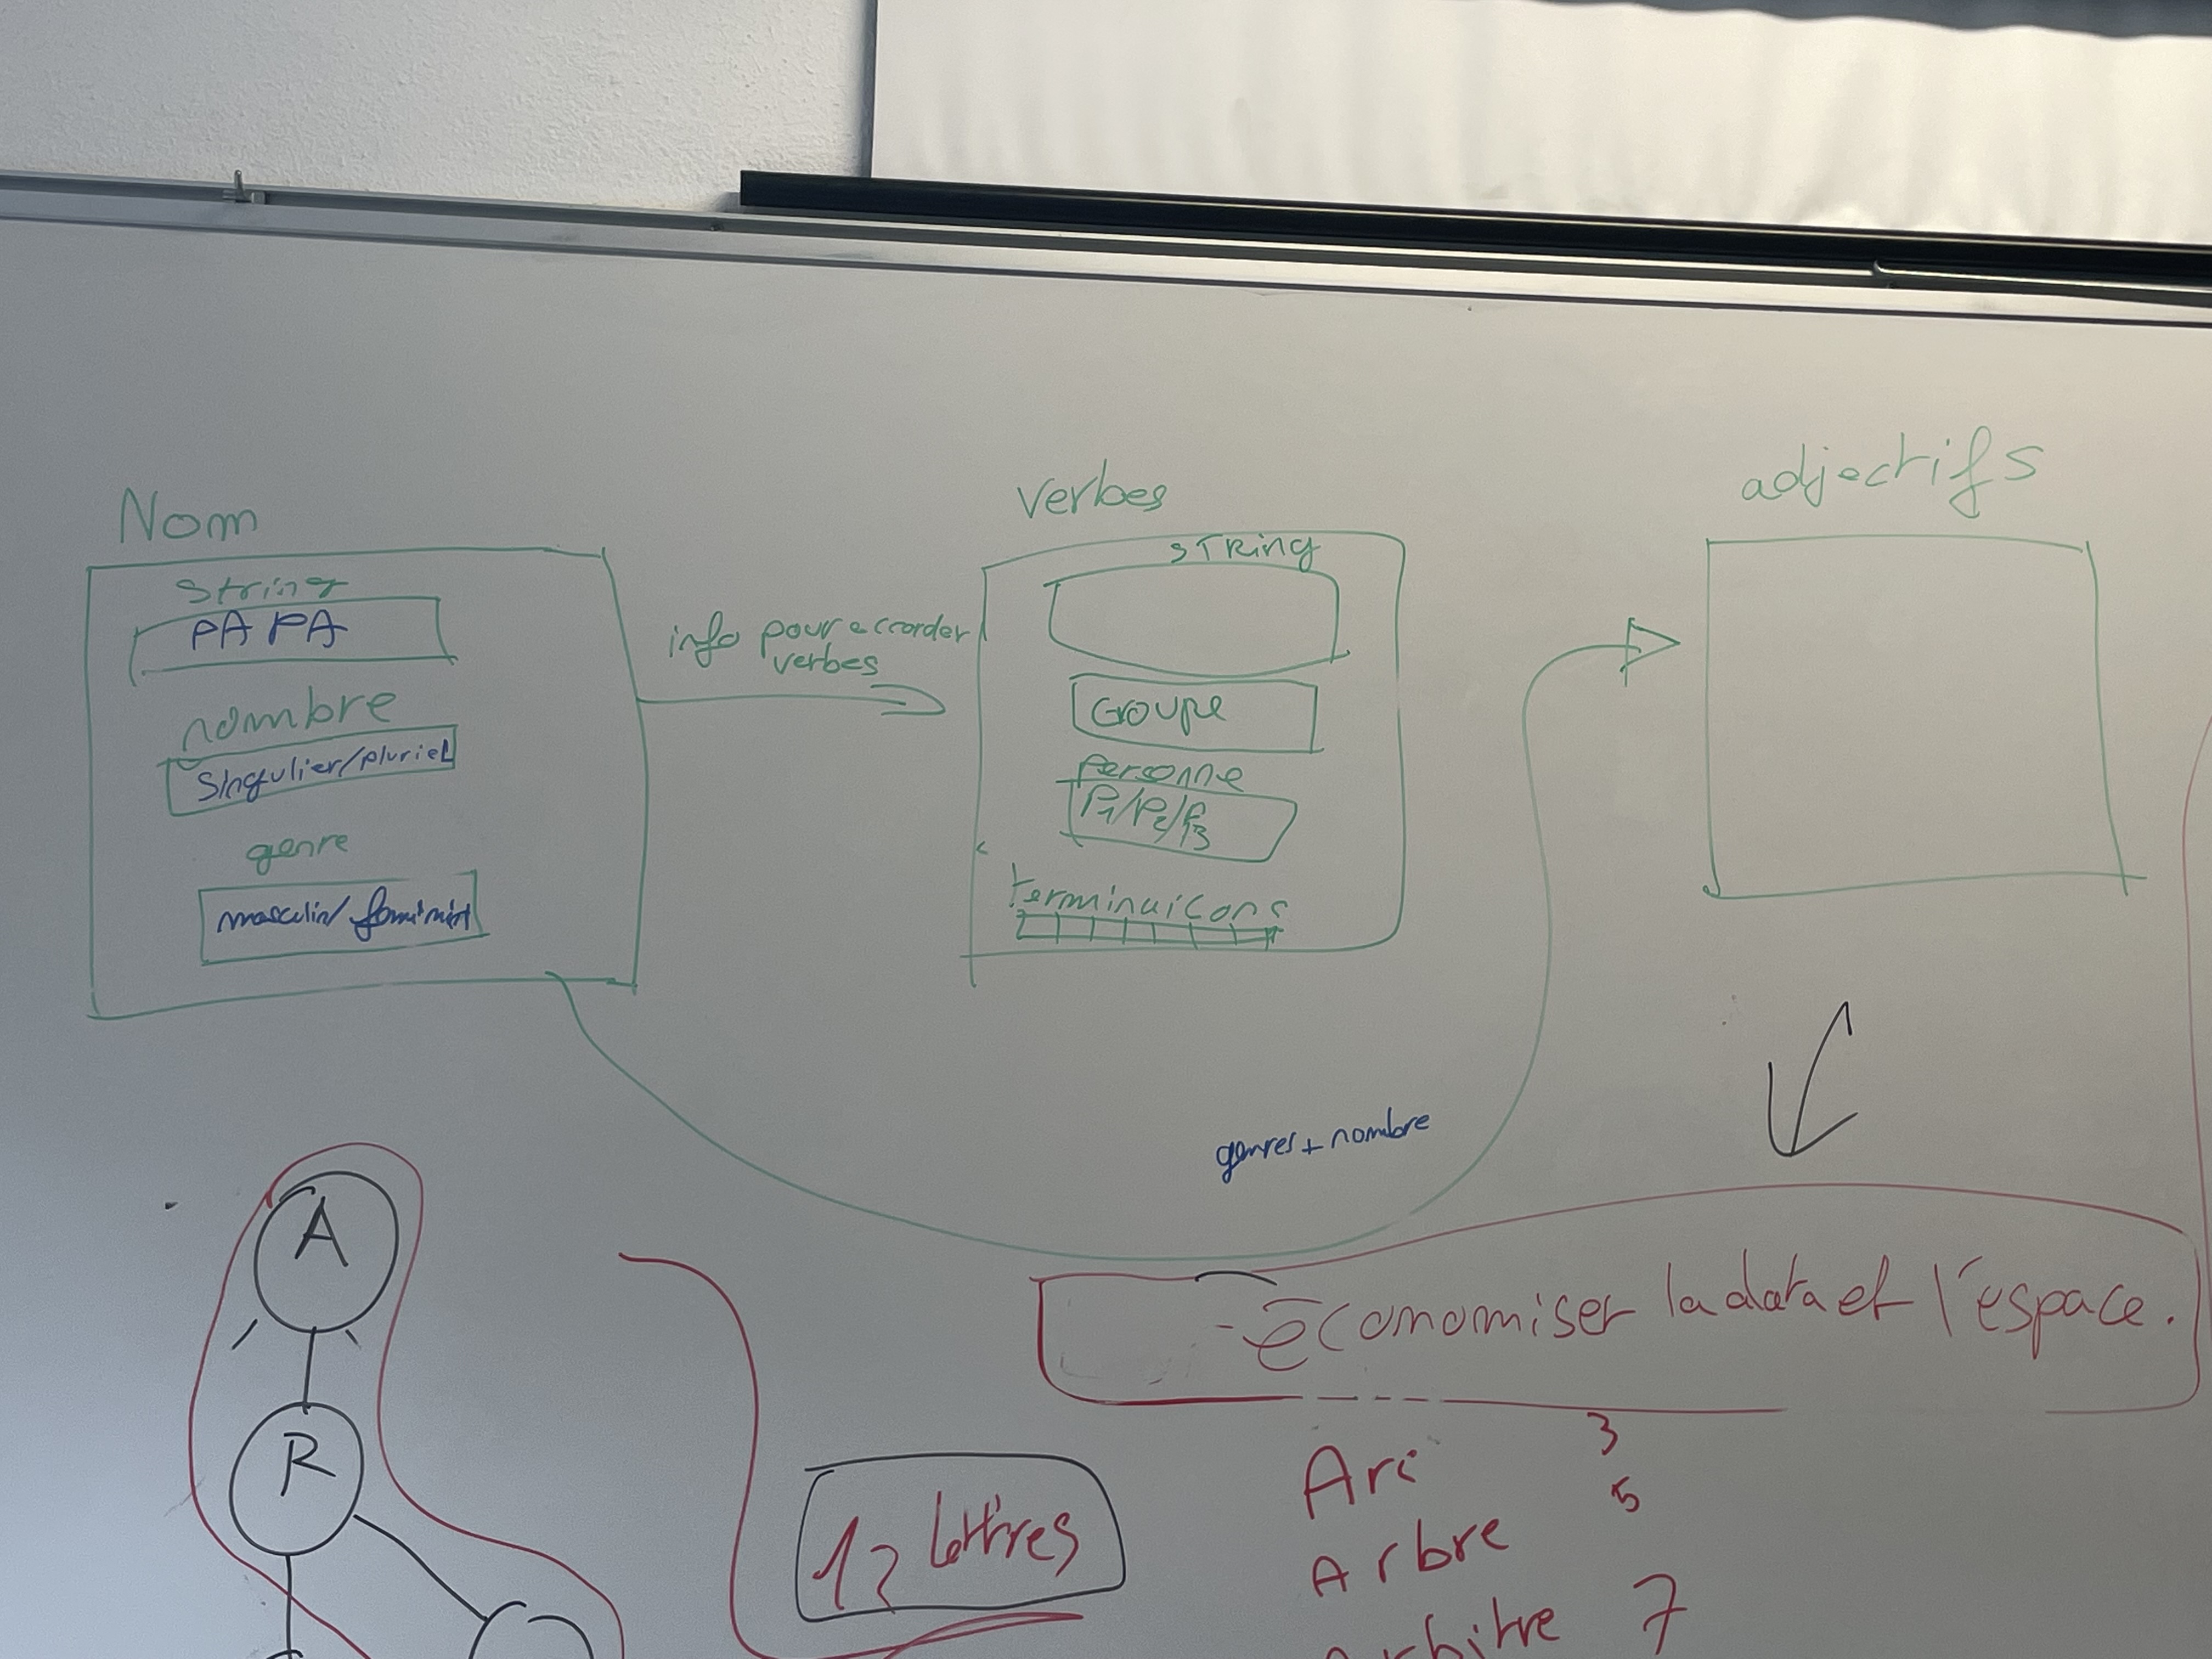 Nom
String
PAPA
nombre
Singulier/pluriel
genre
masculin/ feminin
info pour accorder
verbes
Verbes
STRing
Groupe
Personne
P1/P2/P3
terminaicons
adjectifs
genres + nombre
- économiser la data et l'espace.
A
R
12 lettres
Arc 3
Arbre 5
Arbitre 7